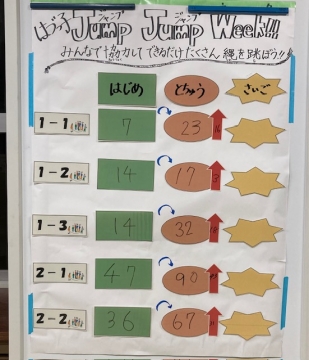 はづっ子 Jump Jump Week!!!
ジャンプ ジャンプ
みんなで協力してできるだけたくさん縄を跳ぼう!!
はじめ とちゅう さいご
1-1 7 23 16
1-2 14 17 3
1-3 14 32 18
2-1 47 90
2-2 36 67